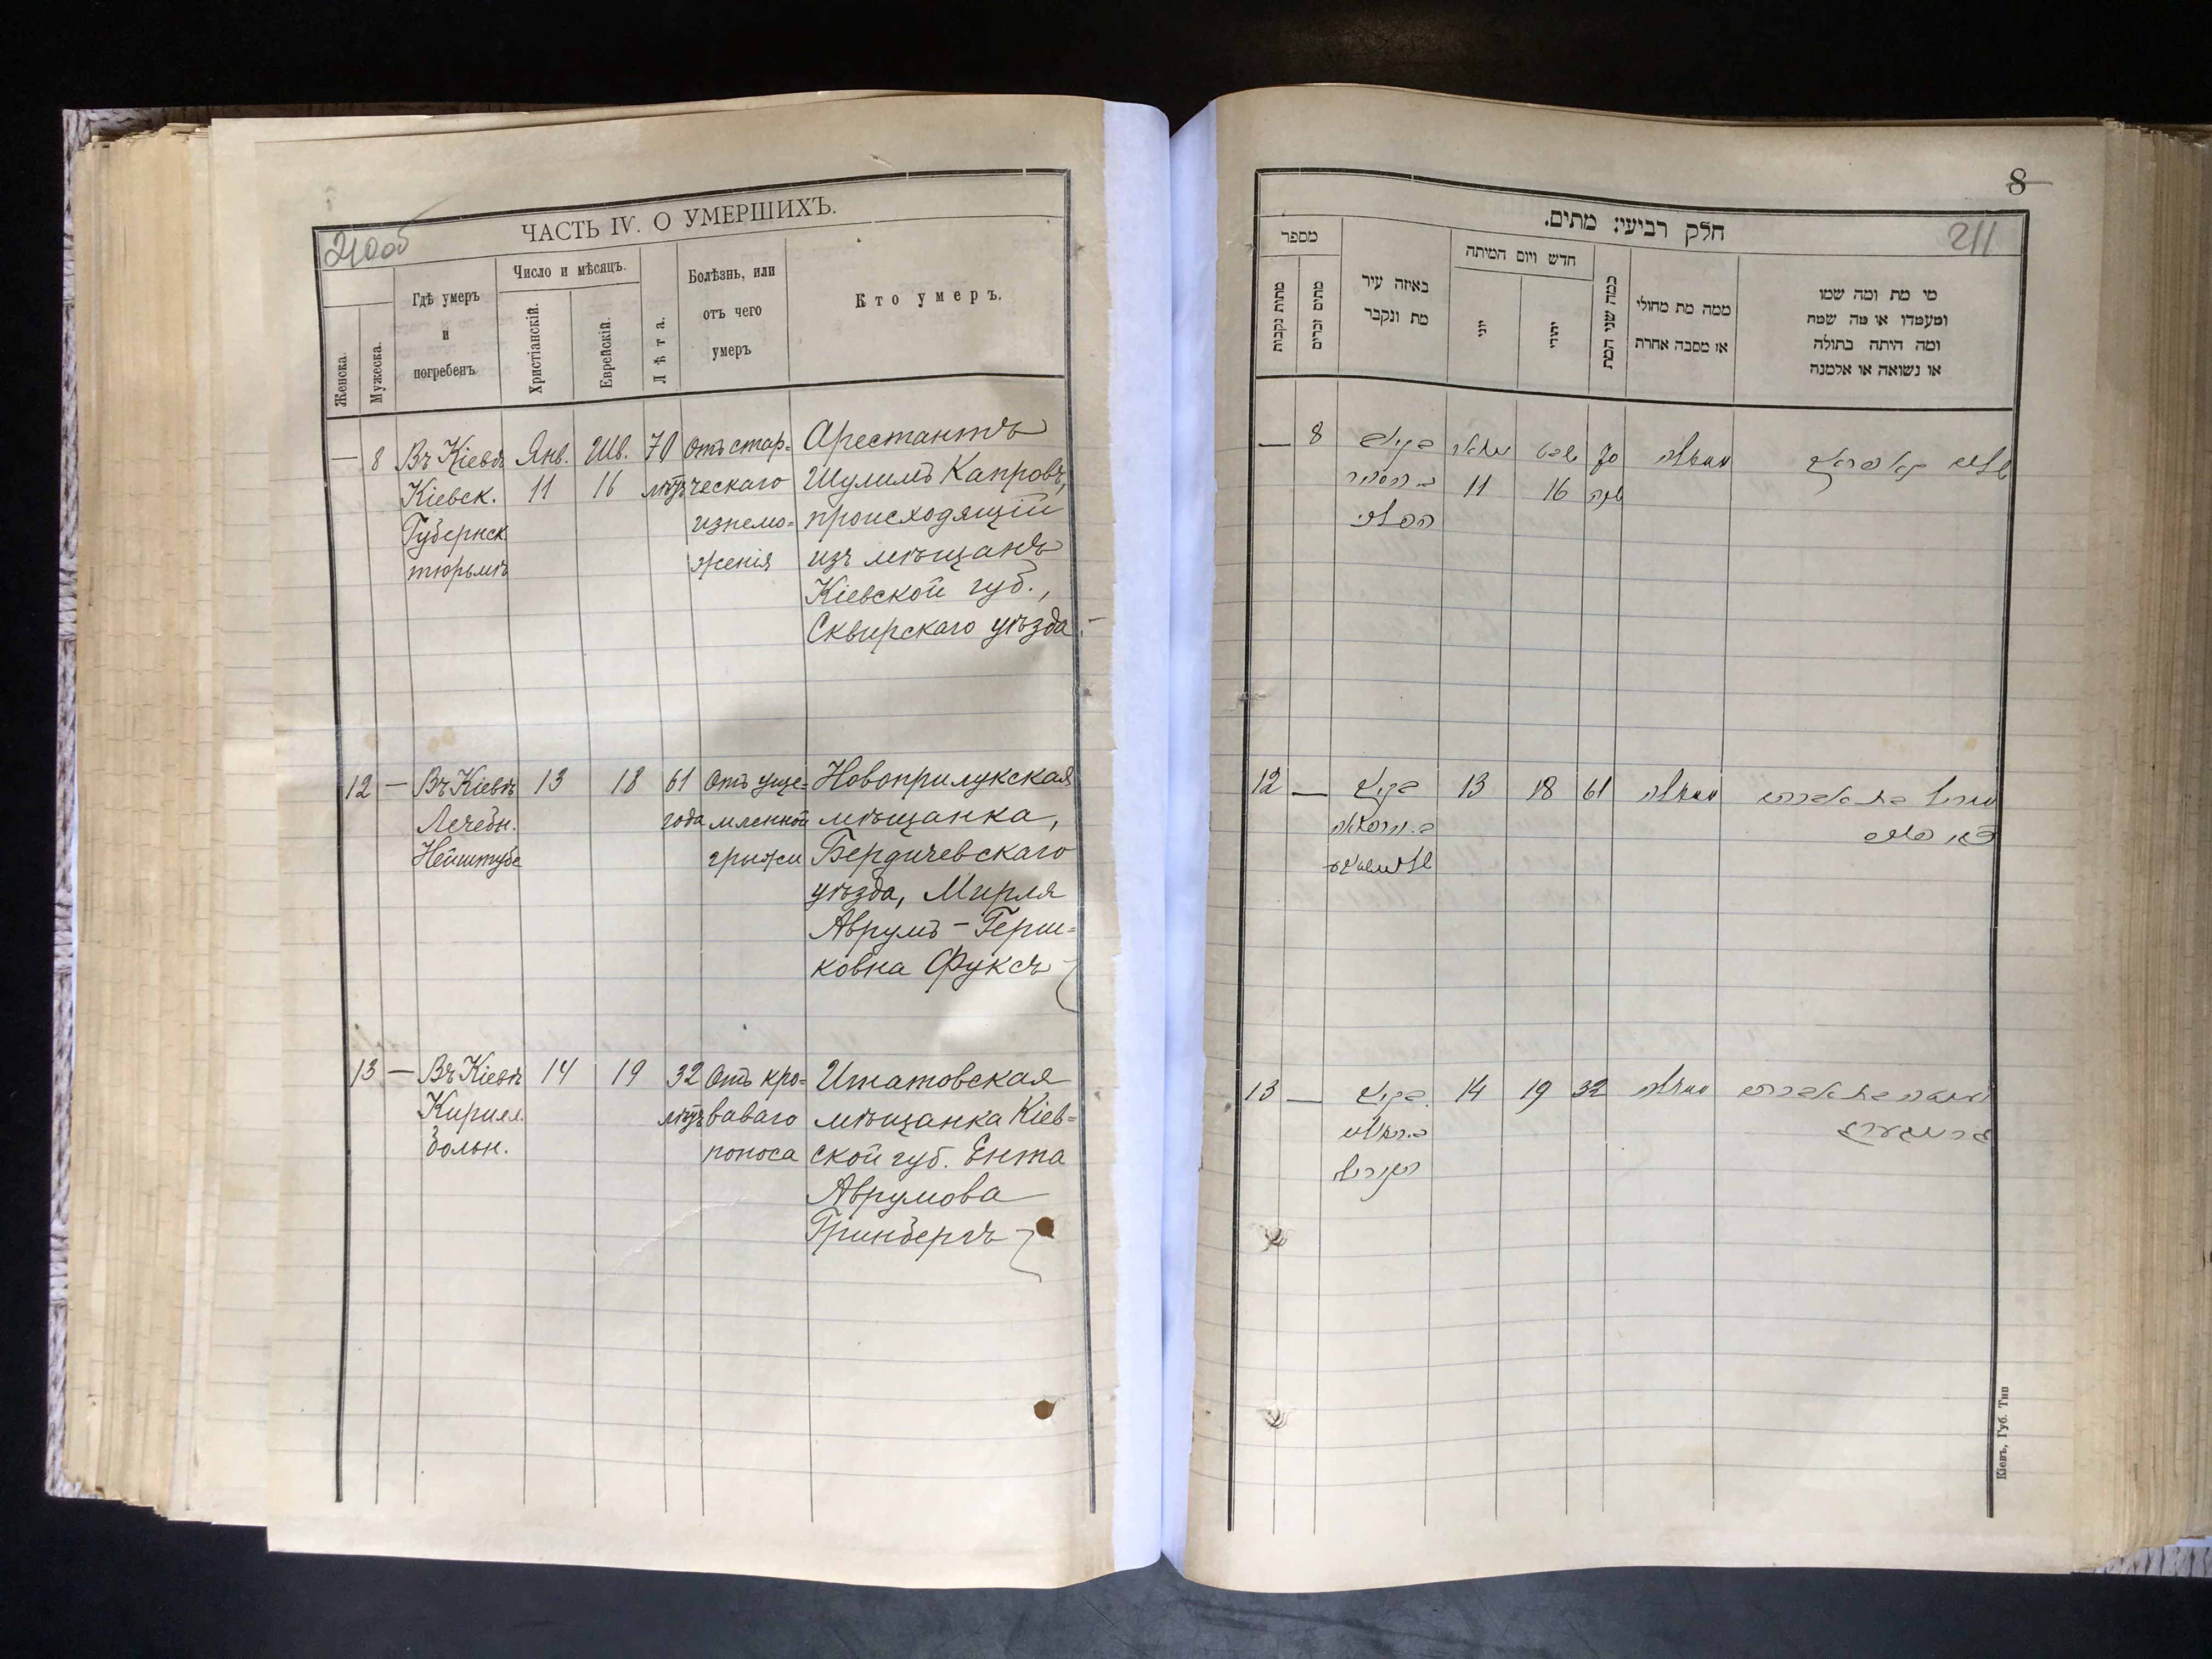 210об
ЧАСТЬ IV. О УМЕРШИХЪ.
Женска.
Мужеска.
Гдѣ умеръ
и
погребенъ
Число и мѣсяцъ.
Христіанскій.
Еврейскій.
Лѣта.
Болѣзнь, или
отъ чего
умеръ
Кто умеръ.
— 8 Въ Кіевѣ Янв. Шв. 70 Отъ стар= Арестантъ
Кіевск. 11 16 лѣтъ ческаго Шулимъ Капровъ,
Губернск. изнемо= происходящій
тюрьмѣ женія изъ мѣщанъ
Кіевской губ.,
Сквирскаго уѣзда.
12 — Въ Кіевѣ 13 18 61 Отъ уще= Новоприлукская
Лечебн. года мленной мѣщанка,
Нейштубе грыжи Бердичевскаго
уѣзда, Мирля
Аврумъ-Герш=
ковна Фуксъ
13 — Въ Кіевѣ 14 19 32 Отъ кро= Игнатовская
Кирил. лѣтъ ваваго мѣщанка Кіев=
больн. поноса ской губ. Ента
Аврумова
Гринбергъ
8
211
חלק רביעי: מתים.
מספר
מתות נקבות
מתים זכרים
באיזה עיר
מת ונקבר
חדש ויום המיתה
יוני
יהודי
כמה שני המת
ממה מת מחולי
או מסבה אחרת
מי מת ומה שמו
ומעמדו או מה שמח
ומה היתה בתולה
או נשואה או אלמנה
— 8 בקיוב שבט 70
11 16 שנה
12 — בקיוב 13 18 61
13 — בקיוב 14 19 32
גרינבערג
Кіевъ, Губ. Тип